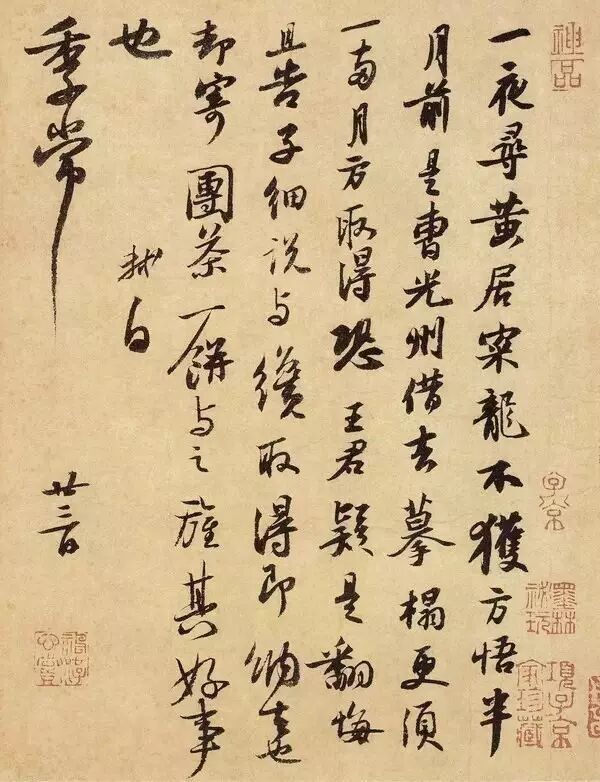 一夜尋黄居寀龍不獲方悟半
月前是曹光州借去摹榻更須
一兩月方取得恐王君疑是翻悔
且告子細說与纔取得即納去也
却寄團茶一餅与之旌其好事
也
軾白
季常
廿三日
神品
子京
墨林祕玩
項子京家珍藏